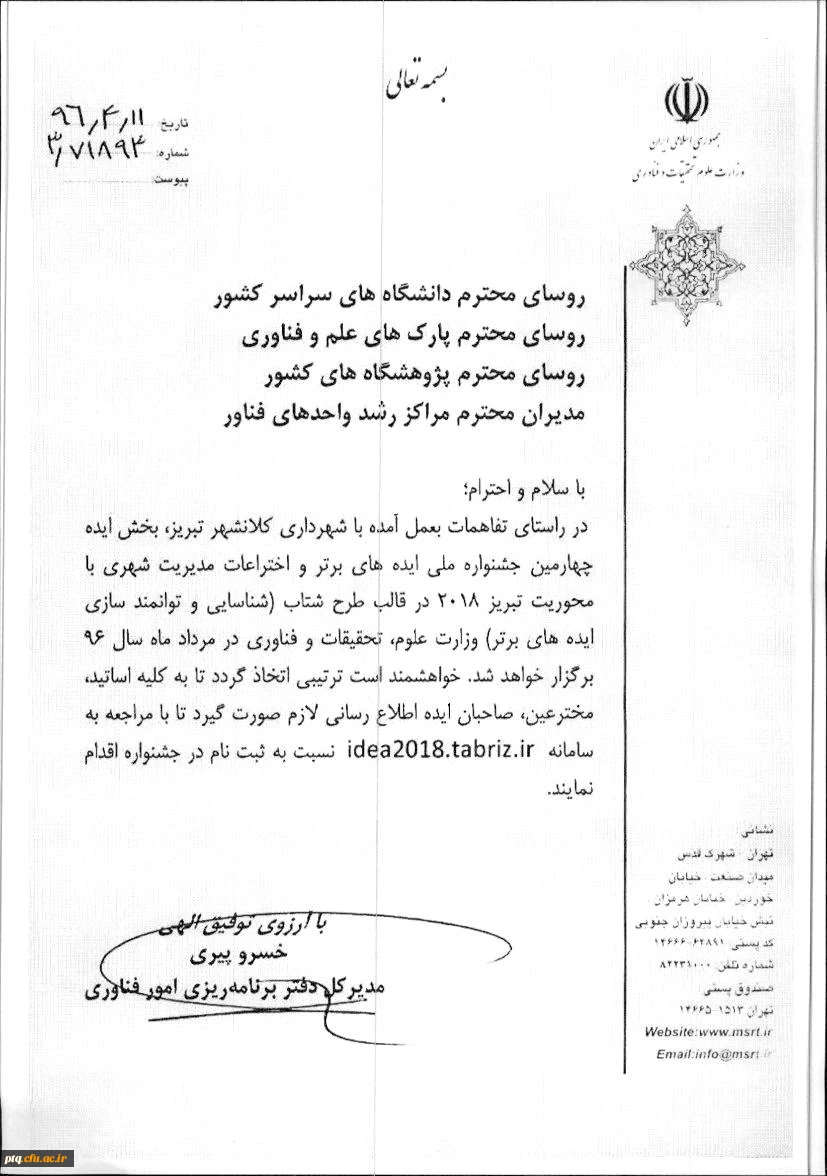 بسمه تعالی
جمهوری اسلامی ایران
وزارت علوم تحقیقات و فناوری
تاریخ: ۹۶/۴/۱۱
شماره: ۳/۷۱۸۹۴
پیوست:
روسای محترم دانشگاه های سراسر کشور
روسای محترم پارک های علم و فناوری
روسای محترم پژوهشگاه های کشور
مدیران محترم مراکز رشد واحدهای فناور
با سلام و احترام؛
در راستای تفاهمات بعمل آمده با شهرداری کلانشهر تبریز، بخش ایده
چهارمین جشنواره ملی ایده های برتر و اختراعات مدیریت شهری با
محوریت تبریز ۲۰۱۸ در قالب طرح شتاب (شناسایی و توانمند سازی
ایده های برتر) وزارت علوم، تحقیقات و فناوری در مرداد ماه سال ۹۶
برگزار خواهد شد. خواهشمند است ترتیبی اتخاذ گردد تا به کلیه اساتید،
مخترعین، صاحبان ایده اطلاع رسانی لازم صورت گیرد تا با مراجعه به
سامانه idea2018.tabriz.ir نسبت به ثبت نام در جشنواره اقدام
نمایند.
با آرزوی توفیق الهی
خسرو پیری
مدیرکل دفتر برنامه‌ریزی امور فناوری
نشانی:
تهران - شهرک قدس
میدان صنعت - خیابان
خوردین - خیابان هرمزان -
نبش خیابان پیروزان جنوبی
کد پستی: ۶۴۸۹۱-۱۴۶۶۶
شماره تلفن: ۸۲۲۳۱۰۰۰
صندوق پستی:
تهران ۱۵۱۳-۱۴۶۶۵
Website:www.msrt.ir
Email:info@msrt.ir
ptq.cfu.ac.ir